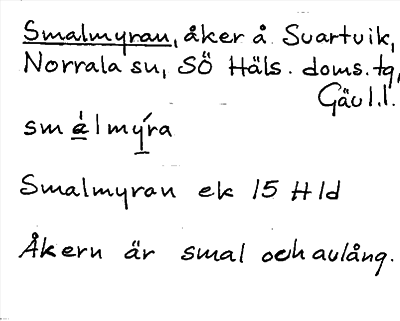 Smalmyran, åker å Svartvik,
Norrala sn, SÖ Häls. doms. tg,
Gävl.l.
smálmýra
Smalmyran ek 15 Hld
Åkern är smal och avlång.